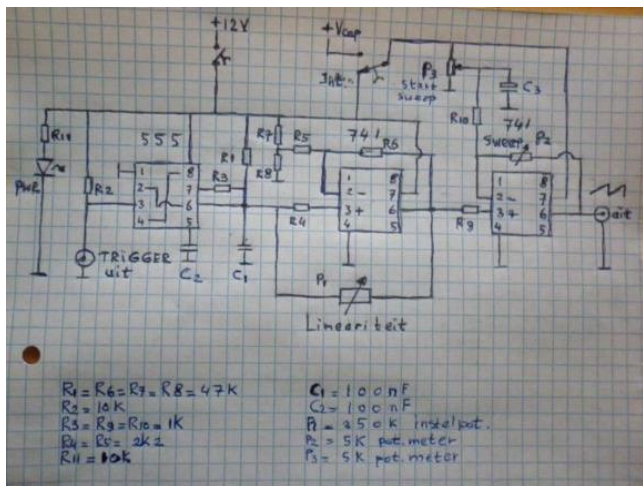 +12V
+Vcap
Int.
P3
start
sweep
C3
R11
555
R7
R5
741
R6
R10
741
sweep
P2
R1
R8
PWR
R2
1 8
2 7
3 6
4 5
R3
1 8
2- 7
3+ 6
4 5
R4
1 8
2- 7
3+ 6
4 5
R9
uit
TRIGGER
uit
C2
C1
P1
Lineariteit
R1=R6=R7=R8=47K
R2=10K
R3=R9=R10=1K
R4=R5=2K2
R11=10K
C1=100nF
C2=100nF
P1=250K instelpot.
P2=5K pot.meter
P3=5K pot.meter